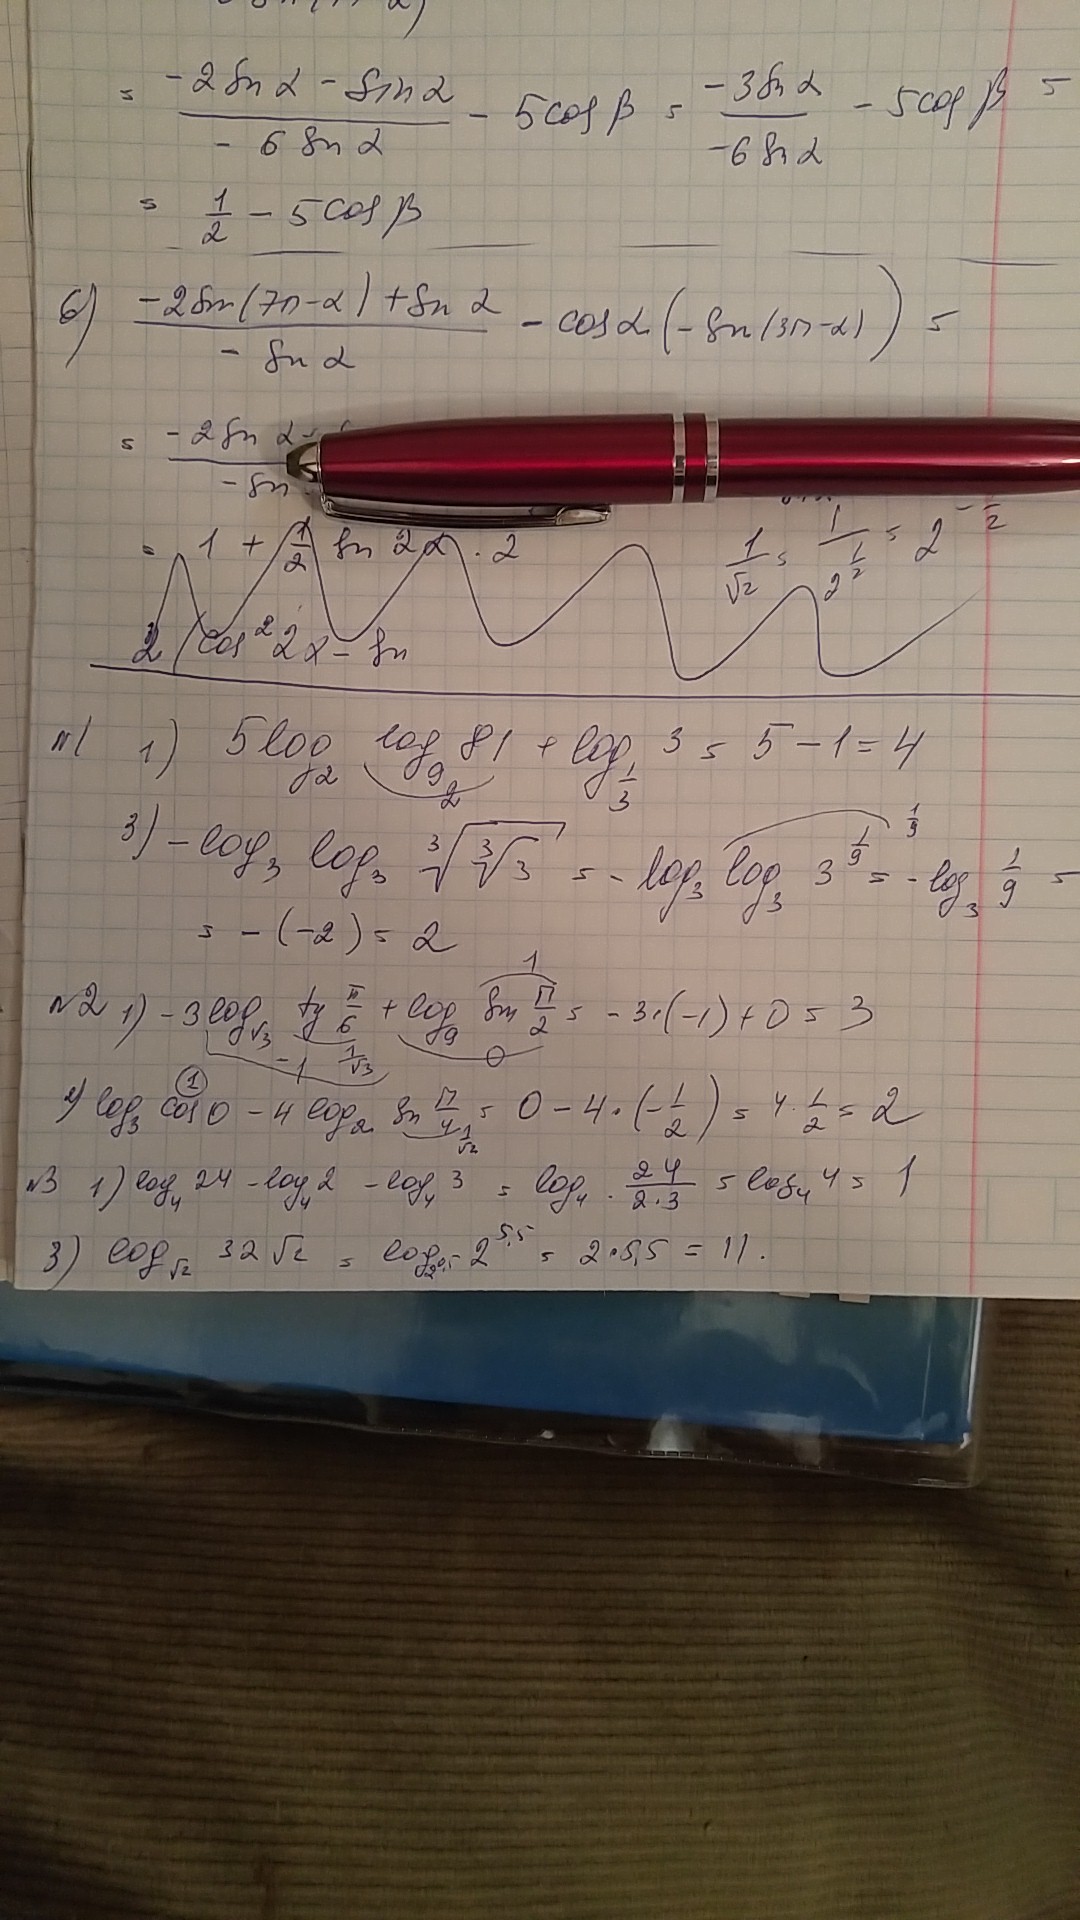 = (-2 sin α - sin α)/(-6 sin α) - 5 cos β = (-3 sin α)/(-6 sin α) - 5 cos β =
= 1/2 - 5 cos β
б) (-2 sin(7π-α) + sin α)/(-sin α) - cos α (-sin(3π-α)) =
= (-2 sin α)/(-sin
= 1 + 1/2 sin 2α · 2
1/√2 = 1/2^(1/2) = 2^(-1/2)
2 (cos² 2α - sin
№1 1) 5 log₂ log₉ 81 + log_(1/3) 3 = 5 - 1 = 4
2
3) -log₃ log₃ ∛(∛3) = -log₃ log₃ 3^(1/9) = -log₃ 1/9 =
1/9
= -(-2) = 2
1
№2 1) -3 log_√3 tg π/6 + log₉ sin π/2 = -3·(-1) + 0 = 3
-1 1/√3 0
1
2) log₃ cos 0 - 4 log₂ sin π/4 = 0 - 4·(-1/2) = 4·1/2 = 2
1/√2
№3 1) log₄ 24 - log₄ 2 - log₄ 3 = log₄ · 24/(2·3) = log₄ 4 = 1
3) log_√2 32√2 = log_(2^0,5) 2^5,5 = 2·5,5 = 11.